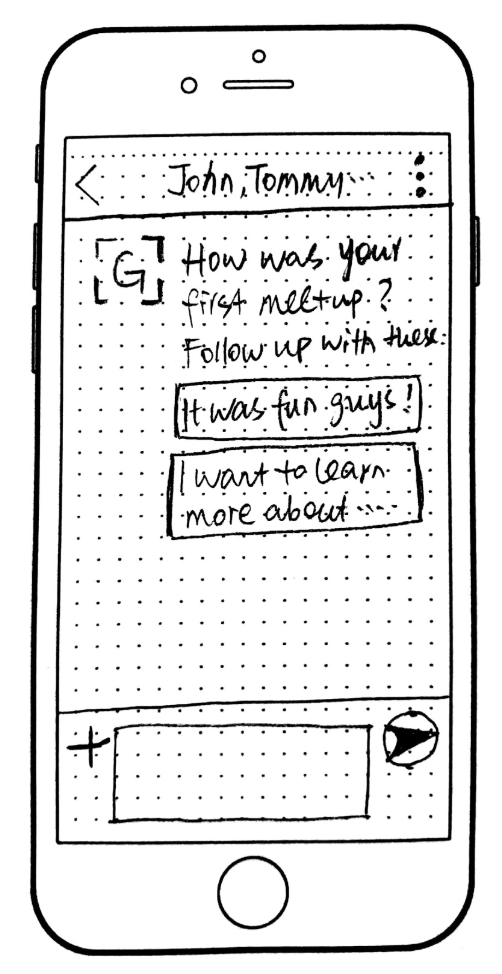 John, Tommy....
G
How was your
first meet-up?
Follow up with these:
It was fun guys!
I want to learn
more about ....